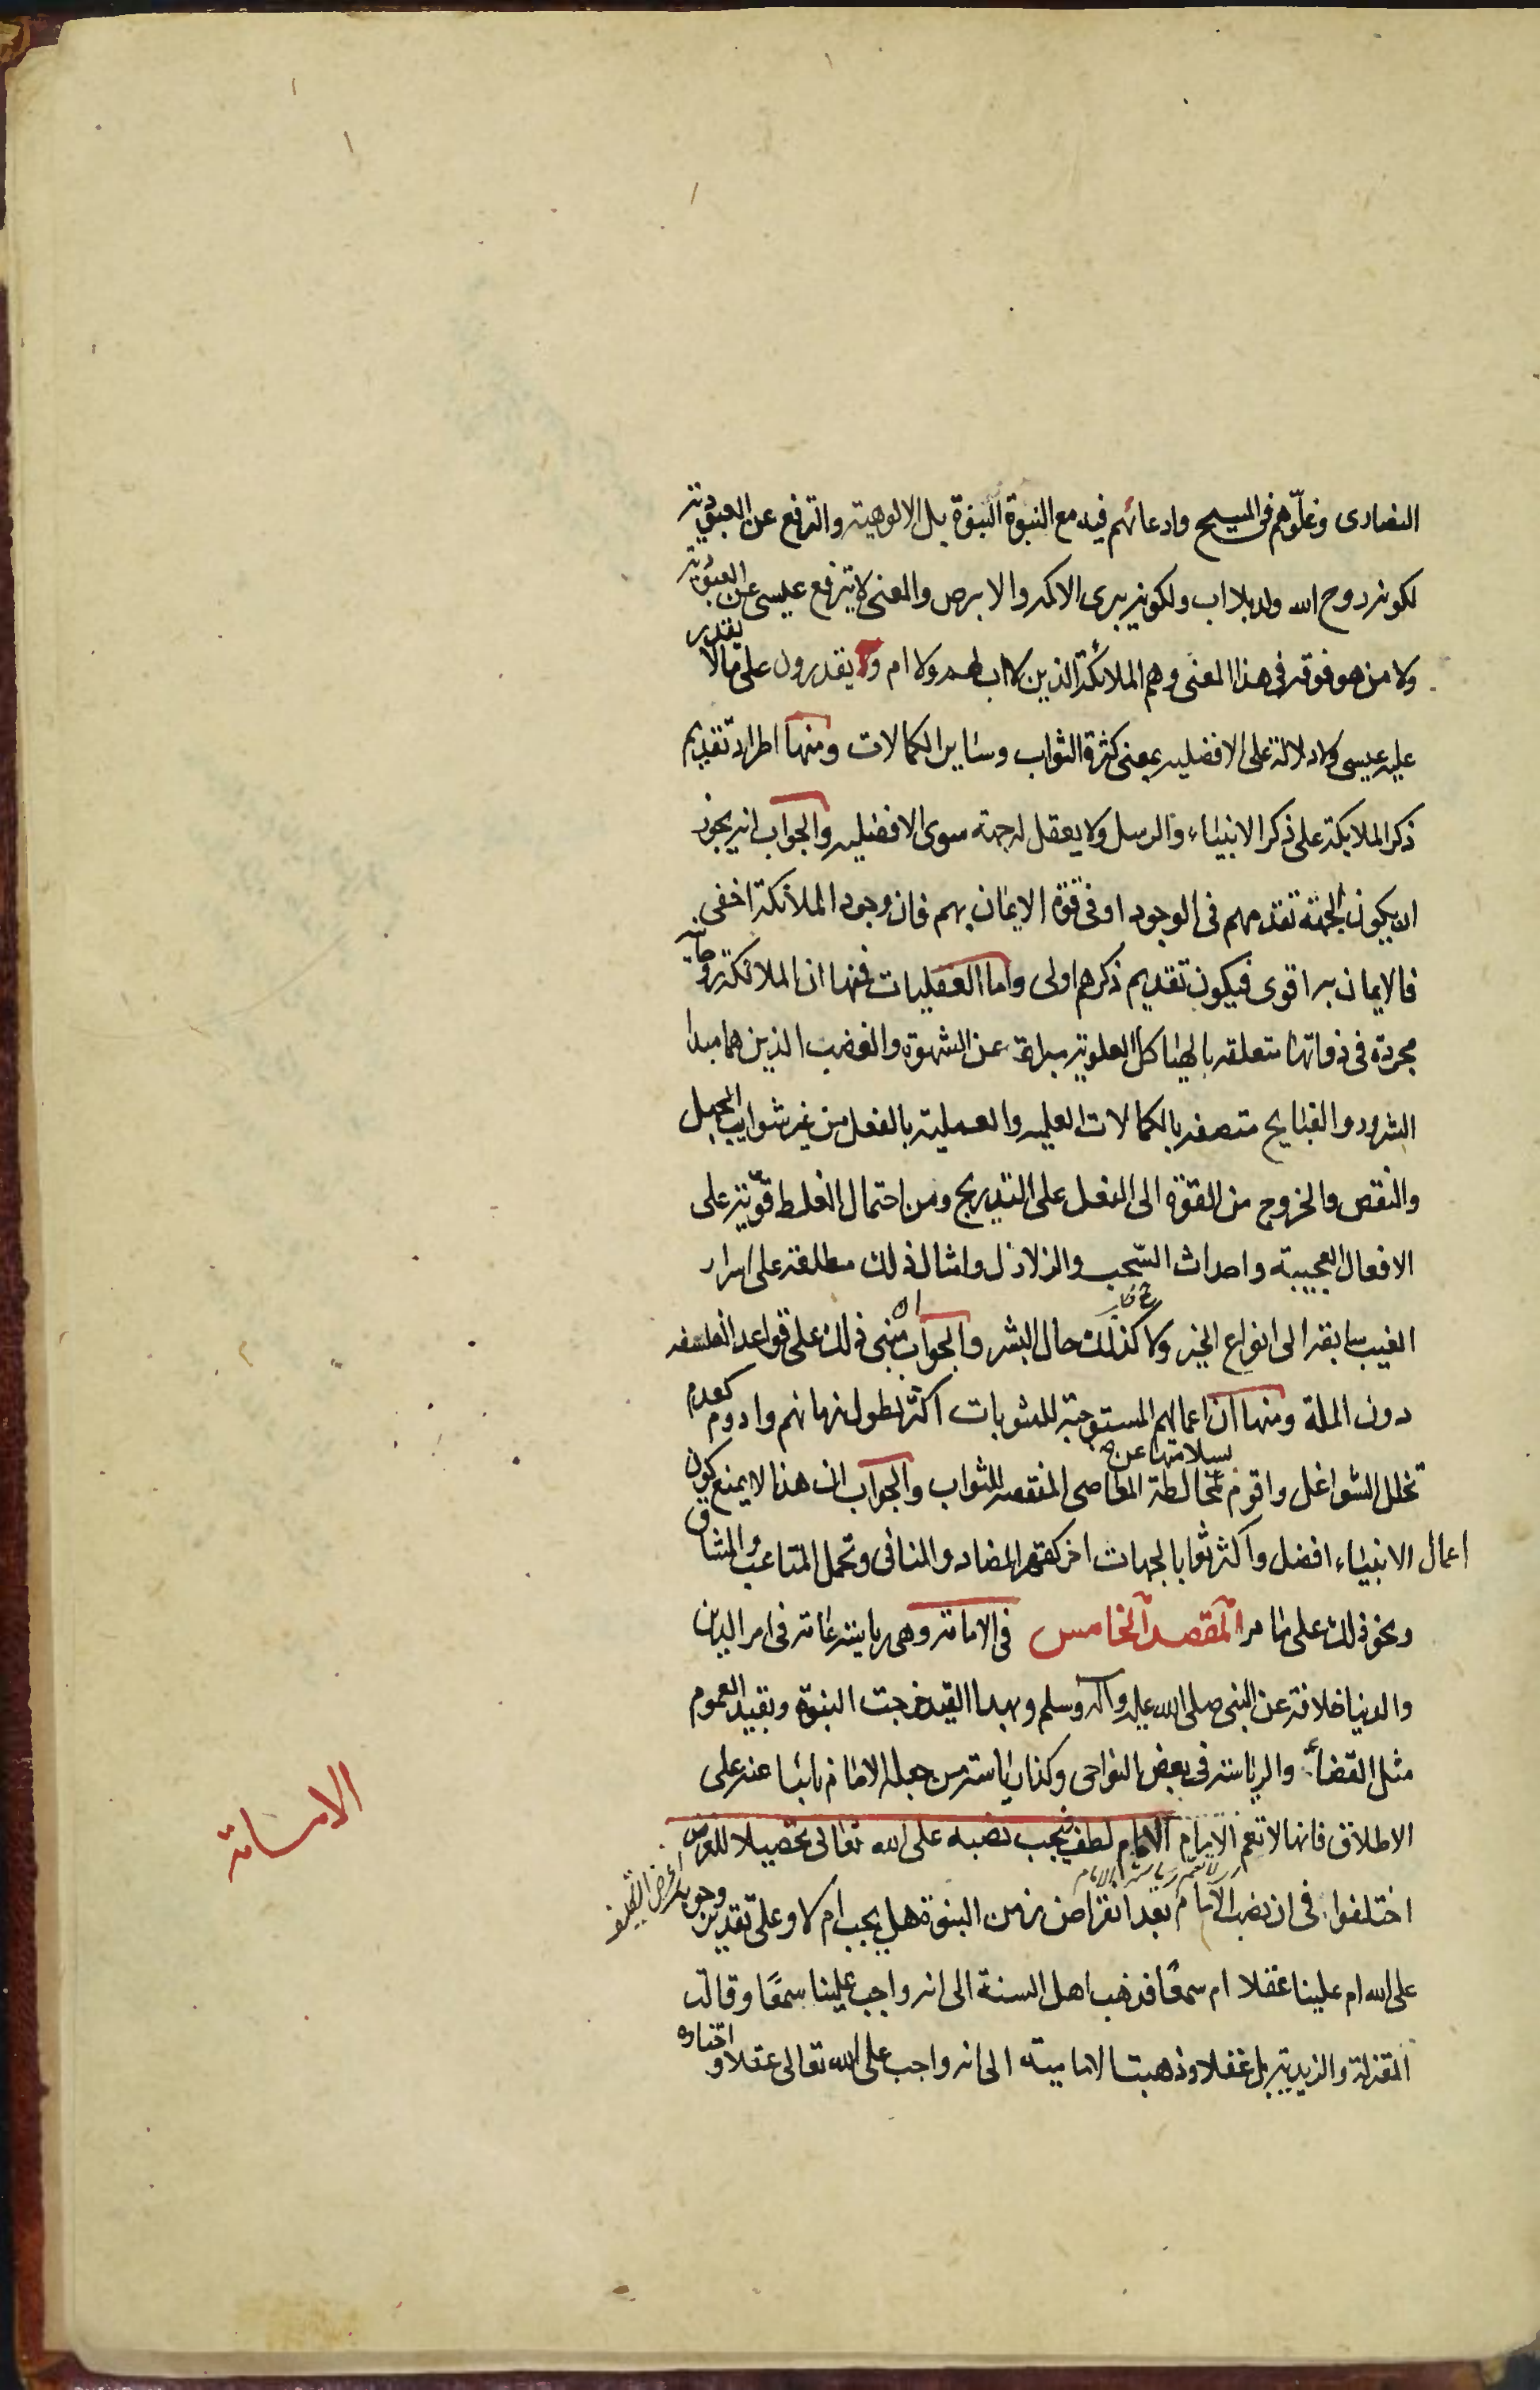 النصارى وغلّوهم فى المسيح وادعائهم فيه مع النبوة البنوة بل الالوهية والترفع عن العبودية
لكونه روح الله ولد بلا اب ولكونه يبرى الاكمه والابرص والمعنى لا يترفع عيسى عن العبودية
ولا من هو فوقه فى هذا المعنى وهم الملائكة الذين لا اب لهم ولا ام ويقدرون على ما لا يقدر
عليه عيسى ولا دلالة على الافضليه بمعنى كثرة الثواب وساير الكمالات ومنها اطراد تقديم
ذكر الملايكة على ذكر الانبياء والرسل ولا يعقل له جهة سوى الافضليه والجواب انه يجوز
ان يكون لجهة تقدمهم فى الوجود او فى قوة الايمان بهم فان وجود الملائكة اخفى
فالايمان به اقوى فيكون تقديم ذكرهم اولى واما العقليات فمنها ان الملائكة روحانية
مجردة فى ذواتها متعلقه بالهياكل العلوية مبراة عن الشهوة والغضب الذين هما مبدا
الشرور والقبايح متصفه بالكمالات العلميه والعملية بالفعل من غير شوايب الجهل
والنقص والخروج من القوة الى الفعل على التدريج ومن احتمال الغلط قوية على
الافعال العجيبة واحداث السّحب والزلازل وامثال ذلك مطلعة على اسرار
الغيب سابقه الى انواع الخير ولا كذلك حال البشر والجواب ان مبنى ذلك على قواعد الفلسفه
دون الملة ومنها ان اعمالهم المستوجبة للمثوبات اكثر لطول زمانهم وادوم لعدم
تخلل الشواغل واقوم لسلامتها عن مخالطة المعاصى المنقصه للثواب والجواب ان هذا لا يمنع كون
اعمال الانبياء افضل واكثر ثوابا لجهات اخر كقهر المضاد والمنافى وتحمل المتاعب والمشاق
ونحو ذلك على ما مر المقصد الخامس فى الامامة وهى رياسة عامة فى امر الدين
والدنيا خلافة عن النبى صلى الله عليه واله وسلم وبهذا القيد خرجت النبوة وبقيد العموم
مثل القضاء والرياسة فى بعض النواحى وكذا رياسة من جعله الامام نائبا عنه على
الاطلاق فانها لا تعم الامام الامام لطف فيجب نصبه على الله تعالى تحصيلا للغرض
اختلفوا فى ان نصب الامام بعد انقراض زمن النبوة هل يجب ام لا وعلى تقدير وجوبه
على الله ام علينا عقلا ام سمعًا فذهب اهل السنة الى انه واجب علينا سمعًا وقالت
المعتزلة والزيدية بل عقلا وذهبت الامامية الى انه واجب على الله تعالى عقلا واختاره
الامامة